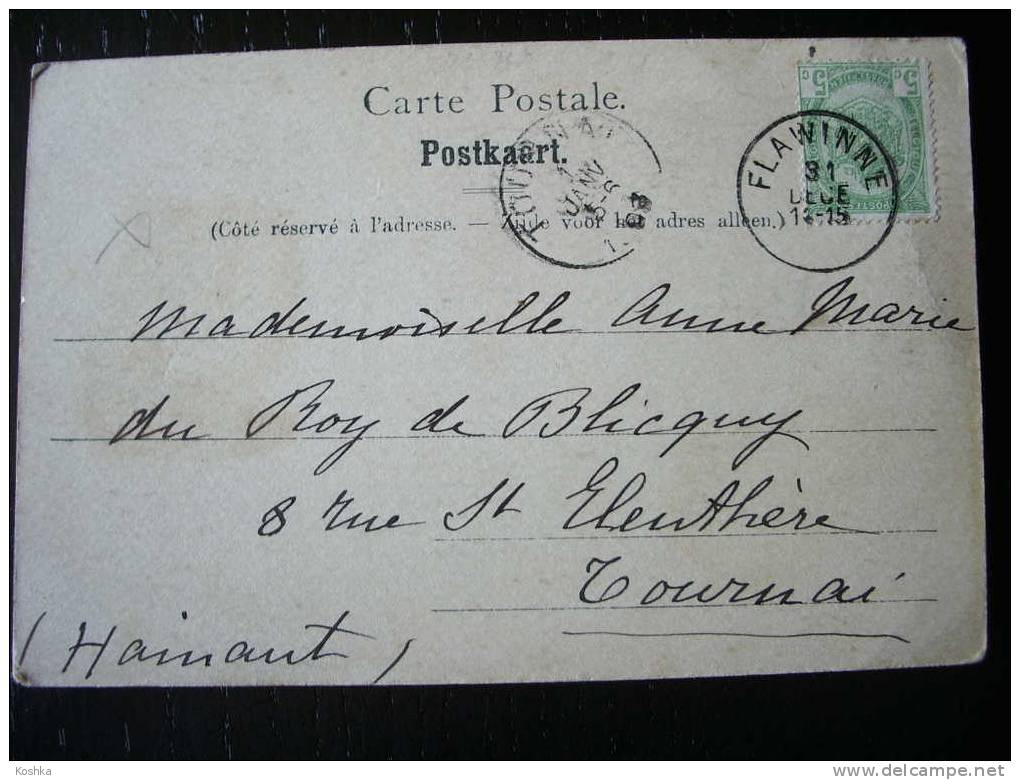 Carte Postale.
Postkaart.
(Côté réservé à l'adresse. — Zijde voor het adres alleen.)
5 c
5 c
POSTES
FLAWINNE
31
DECE
TOURNAI
1
JANV
Mademoiselle Anne Marie
du Roy de Blicquy
8 rue St Eleuthère
Tournai
(Hainaut)
Koshka
delcampe.net